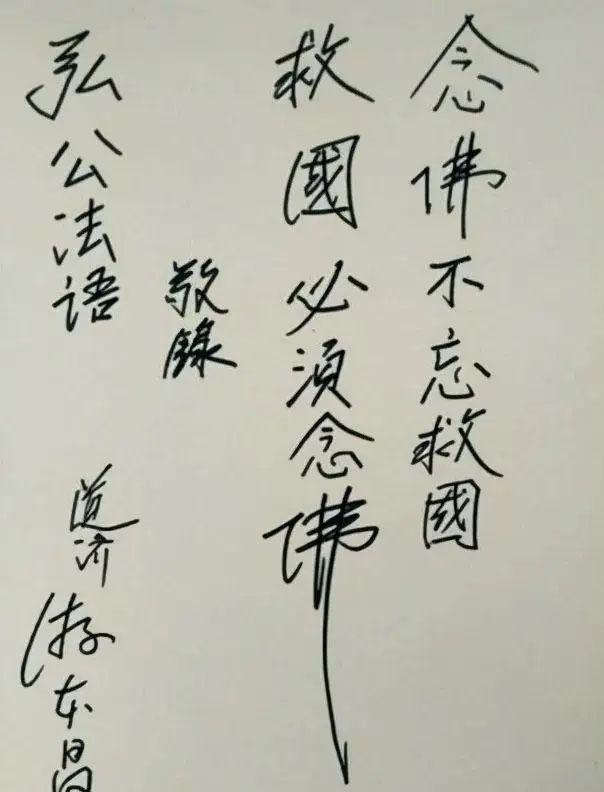 念佛不忘救國
救國必須念佛
敬錄
弘公法语
道济
游本昌